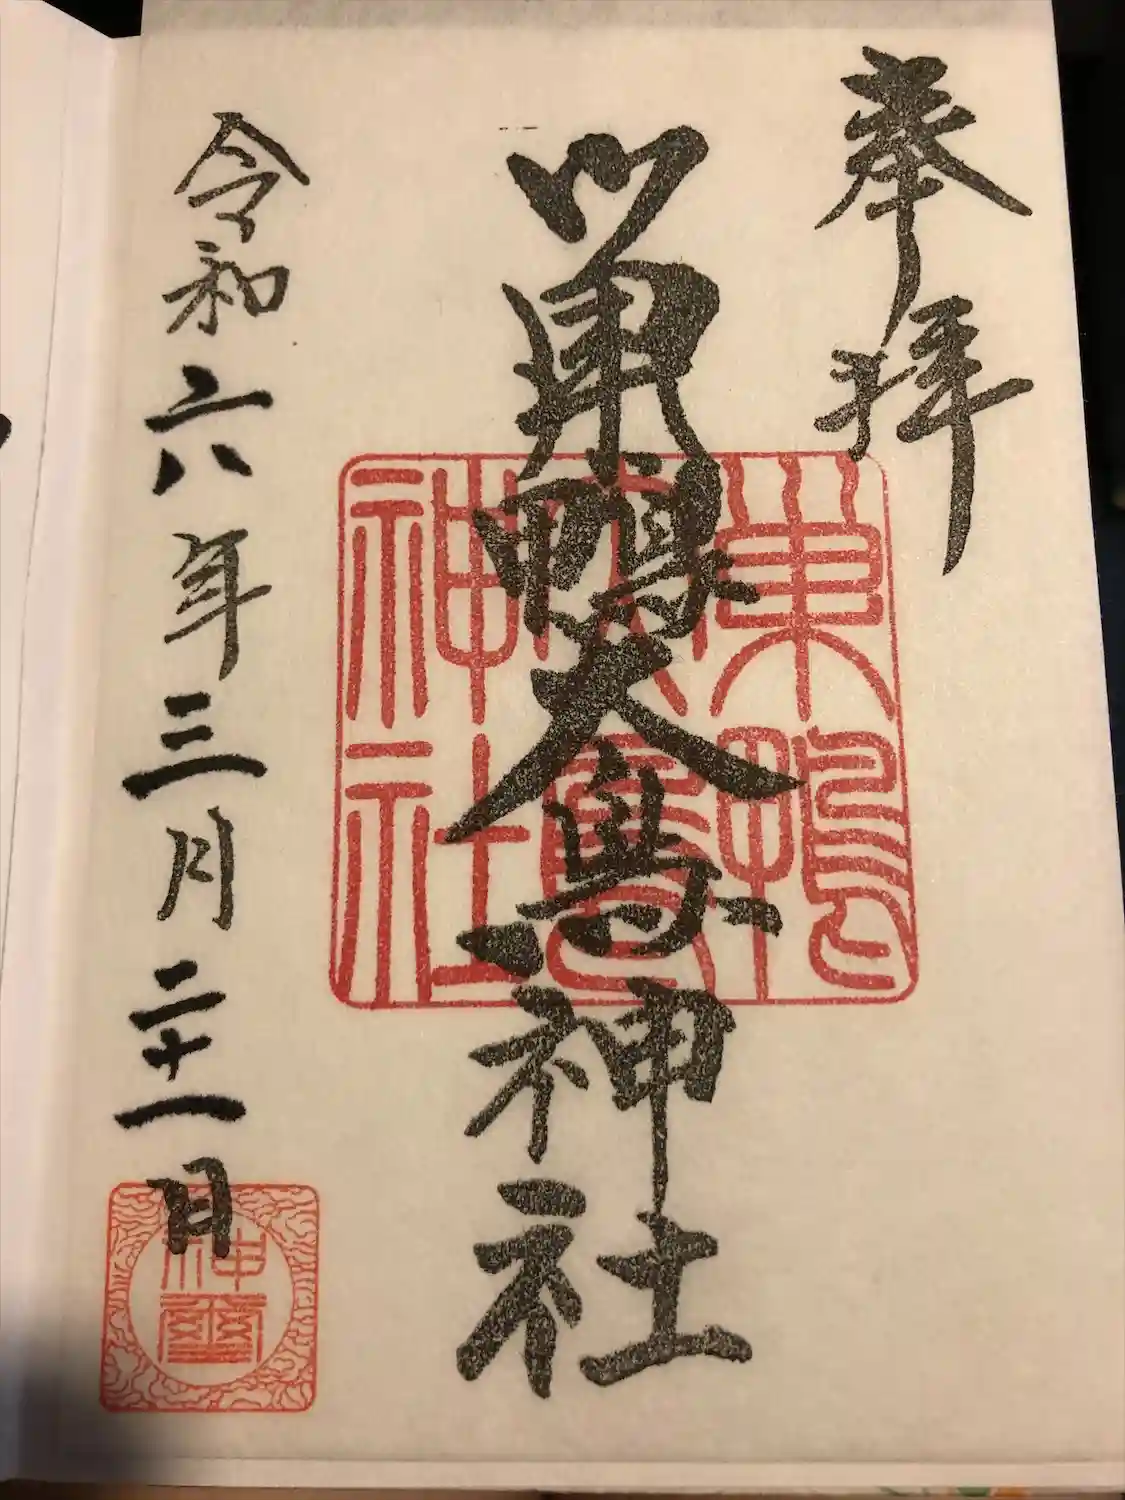 奉拝
巣鴨大鳥神社
令和六年三月二十一日
巣鴨
大鳥
神社
神璽